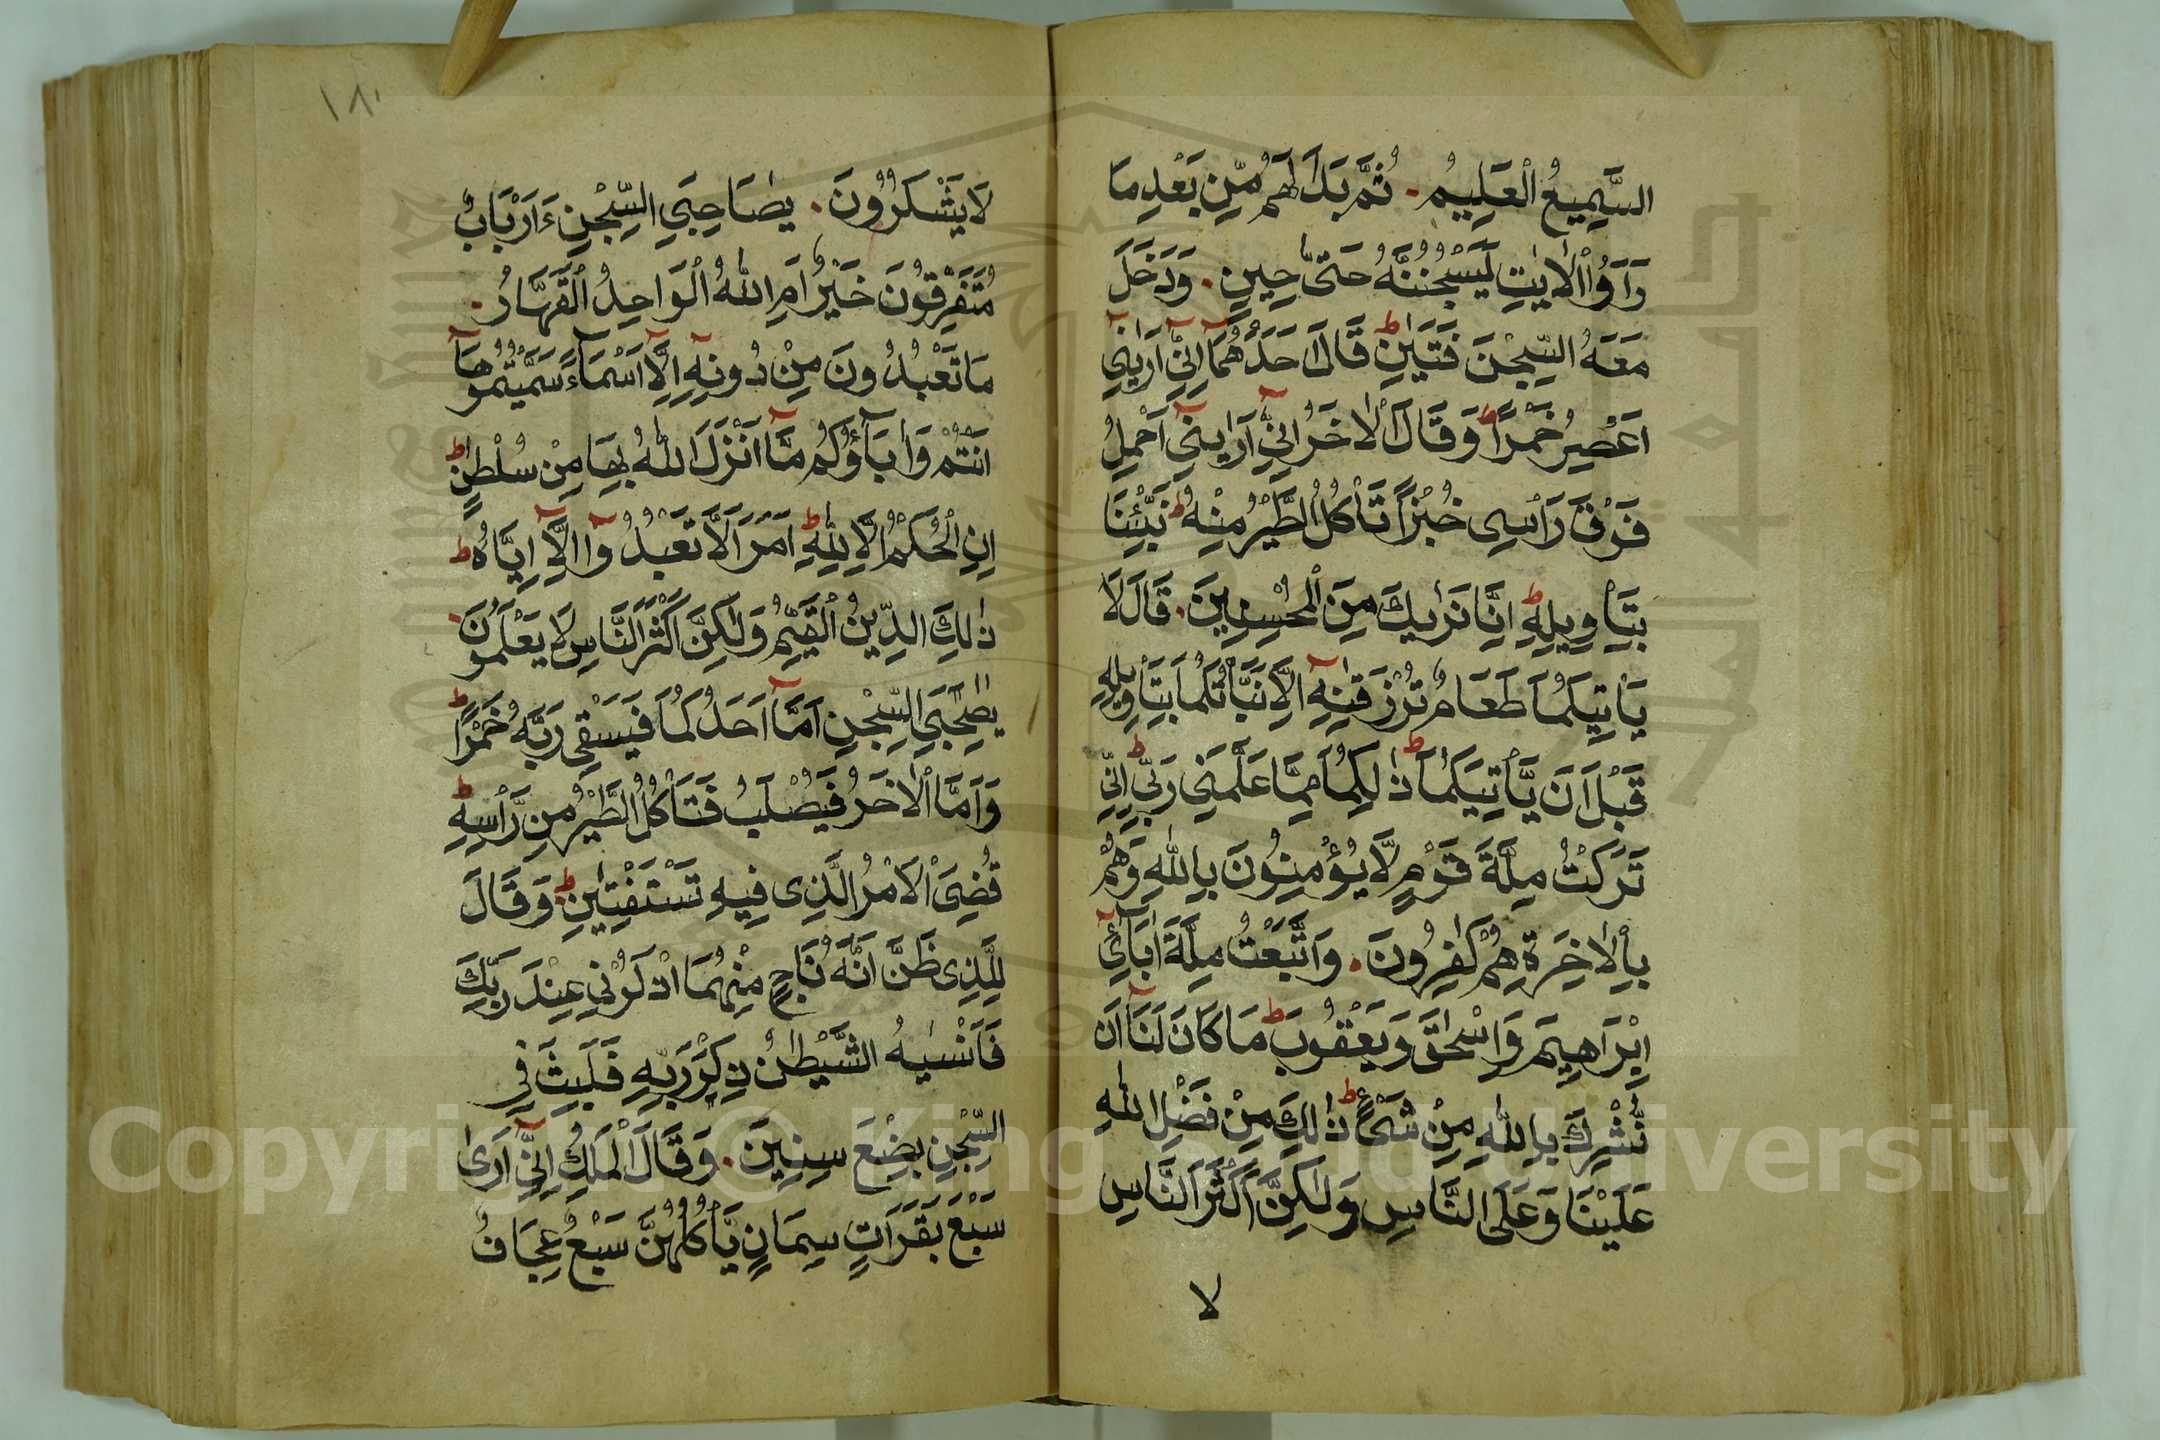 السَّمِيعُ الْعَلِيمُ . ثُمَّ بَدَا لَهُمْ مِّنْ بَعْدِ مَا
رَاَوُا الْاٰيٰتِ لَيَسْجُنُنَّهُ حَتّٰى حِينٍ . وَدَخَلَ
مَعَهُ السِّجْنَ فَتَيٰنِ ط قَالَ اَحَدُهُمَآ اِنِّيٓ اَرٰينِيٓ
اَعْصِرُ خَمْرًا ط وَقَالَ الْاٰخَرُ اِنِّيٓ اَرٰينِيٓ اَحْمِلُ
فَوْقَ رَاْسِى خُبْزًا تَاْكُلُ الطَّيْرُ مِنْهُ ط نَبِّئْنَا
بِتَاْوِيلِهِ ط اِنَّا نَرٰيكَ مِنَ الْمُحْسِنِينَ . قَالَ لَا
يَاْتِيكُمَا طَعَامٌ تُرْزَقٰنِهِٓ اِلَّا نَبَّاْتُكُمَا بِتَاْوِيلِهِ
قَبْلَ اَنْ يَّاْتِيَكُمَا ط ذٰلِكُمَا مِمَّا عَلَّمَنِى رَبِّى ط اِنِّى
تَرَكْتُ مِلَّةَ قَوْمٍ لَّا يُؤْمِنُونَ بِاللّٰهِ وَهُمْ
بِالْاٰخِرَةِ هُمْ كٰفِرُونَ . وَاتَّبَعْتُ مِلَّةَ اٰبَآئِيٓ
اِبْرَاهِيمَ وَاِسْحٰقَ وَيَعْقُوبَ ط مَا كَانَ لَنَآ اَنْ
نُّشْرِكَ بِاللّٰهِ مِنْ شَىْءٍ ط ذٰلِكَ مِنْ فَضْلِ اللّٰهِ
عَلَيْنَا وَعَلَى النَّاسِ وَلٰكِنَّ اَكْثَرَ النَّاسِ
لا
١٨٠
لَا يَشْكُرُونَ . يٰصَاحِبَيِ السِّجْنِ ءَاَرْبَابٌ
مُتَفَرِّقُونَ خَيْرٌ اَمِ اللّٰهُ الْوَاحِدُ الْقَهَّارُ .
مَا تَعْبُدُونَ مِنْ دُونِهِٓ اِلَّآ اَسْمَآءً سَمَّيْتُمُوهَآ
اَنْتُمْ وَاٰبَآؤُكُمْ مَّآ اَنْزَلَ اللّٰهُ بِهَا مِنْ سُلْطٰنٍ ط
اِنِ الْحُكْمُ اِلَّا لِلّٰهِ ط اَمَرَ اَلَّا تَعْبُدُوٓا اِلَّآ اِيَّاهُ ط
ذٰلِكَ الدِّينُ الْقَيِّمُ وَلٰكِنَّ اَكْثَرَ النَّاسِ لَا يَعْلَمُونَ .
يٰصٰحِبَيِ السِّجْنِ اَمَّآ اَحَدُكُمَا فَيَسْقِى رَبَّهُ خَمْرًا ط
وَاَمَّا الْاٰخَرُ فَيُصْلَبُ فَتَاْكُلُ الطَّيْرُ مِنْ رَّاْسِهِ ط
قُضِىَ الْاَمْرُ الَّذِى فِيهِ تَسْتَفْتِيٰنِ ط وَقَالَ
لِلَّذِى ظَنَّ اَنَّهُ نَاجٍ مِنْهُمَا اذْكُرْنِى عِنْدَ رَبِّكَ
فَاَنْسٰيهُ الشَّيْطٰنُ ذِكْرَ رَبِّهِ فَلَبِثَ فِى
السِّجْنِ بِضْعَ سِنِينَ . وَقَالَ الْمَلِكُ اِنِّيٓ اَرٰى
سَبْعَ بَقَرَاتٍ سِمَانٍ يَّاْكُلُهُنَّ سَبْعٌ عِجَافٌ
Copyright © King Saud University